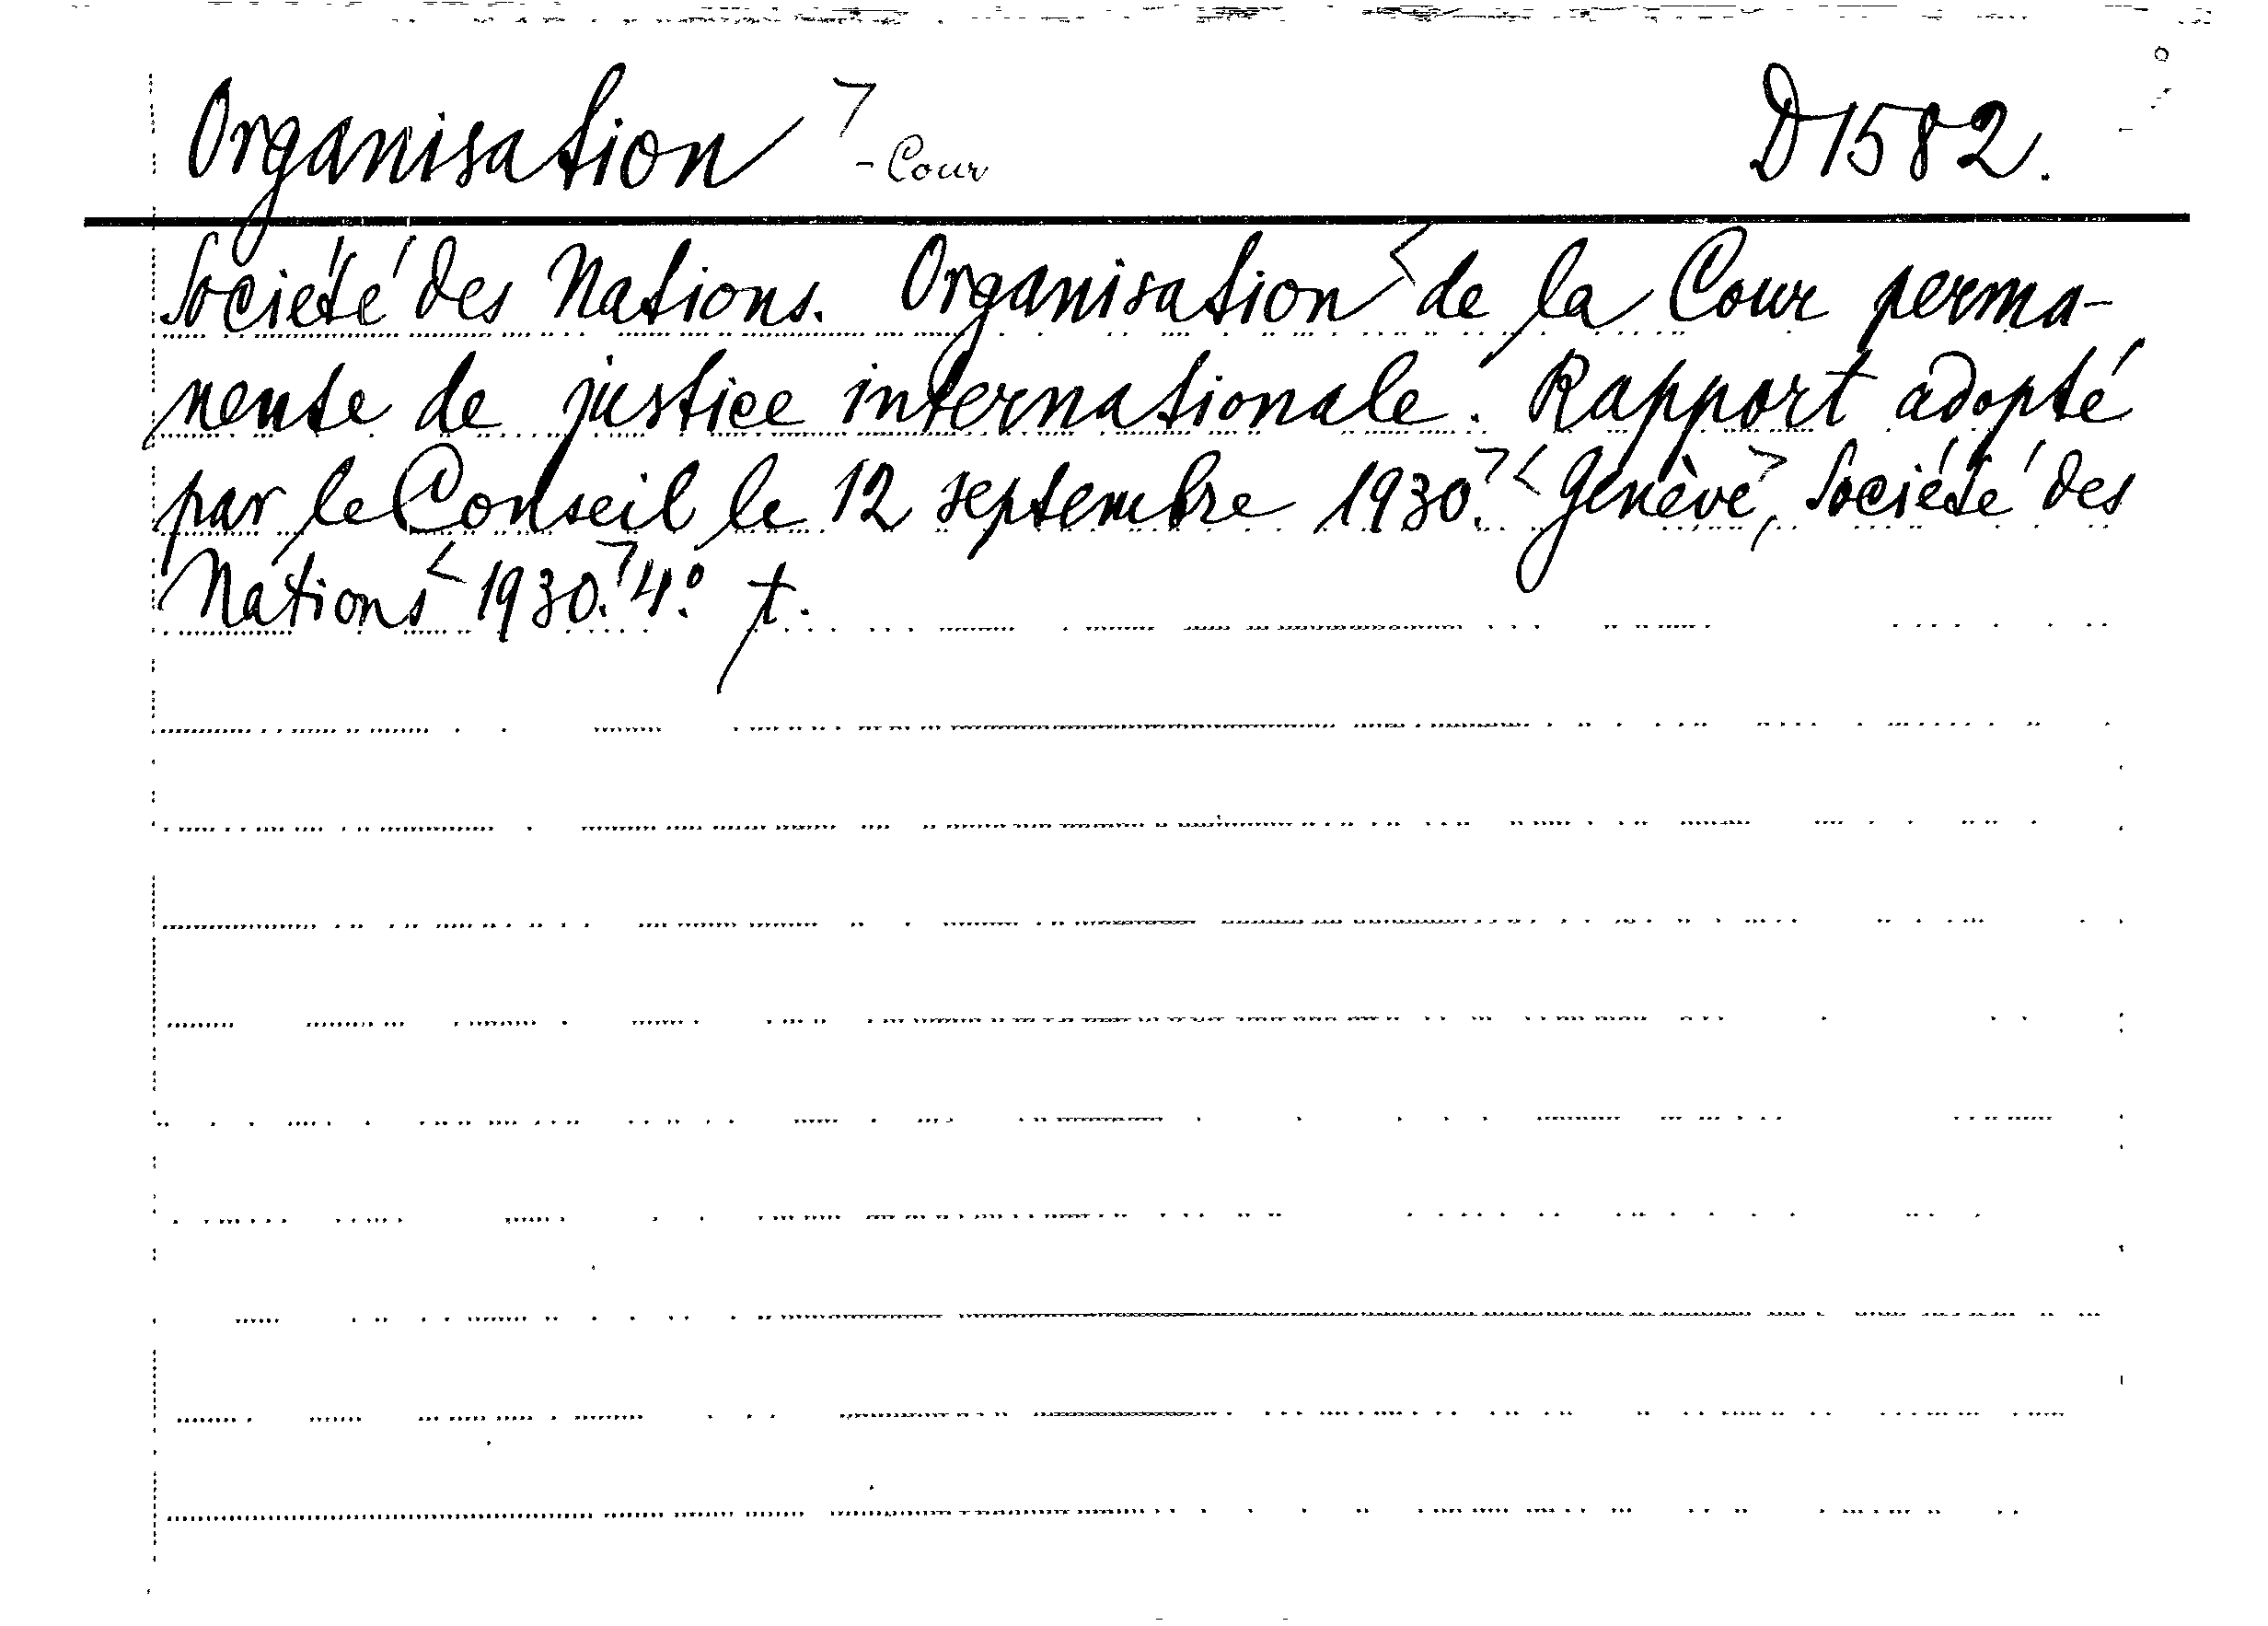 Organisation - Cour D1582.
Société des Nations. Organisation de la Cour perma-
nente de justice internationale. Rapport adopté
par le Conseil le 12 septembre 1930. Genève, Société des
Nations 1930. 4.º